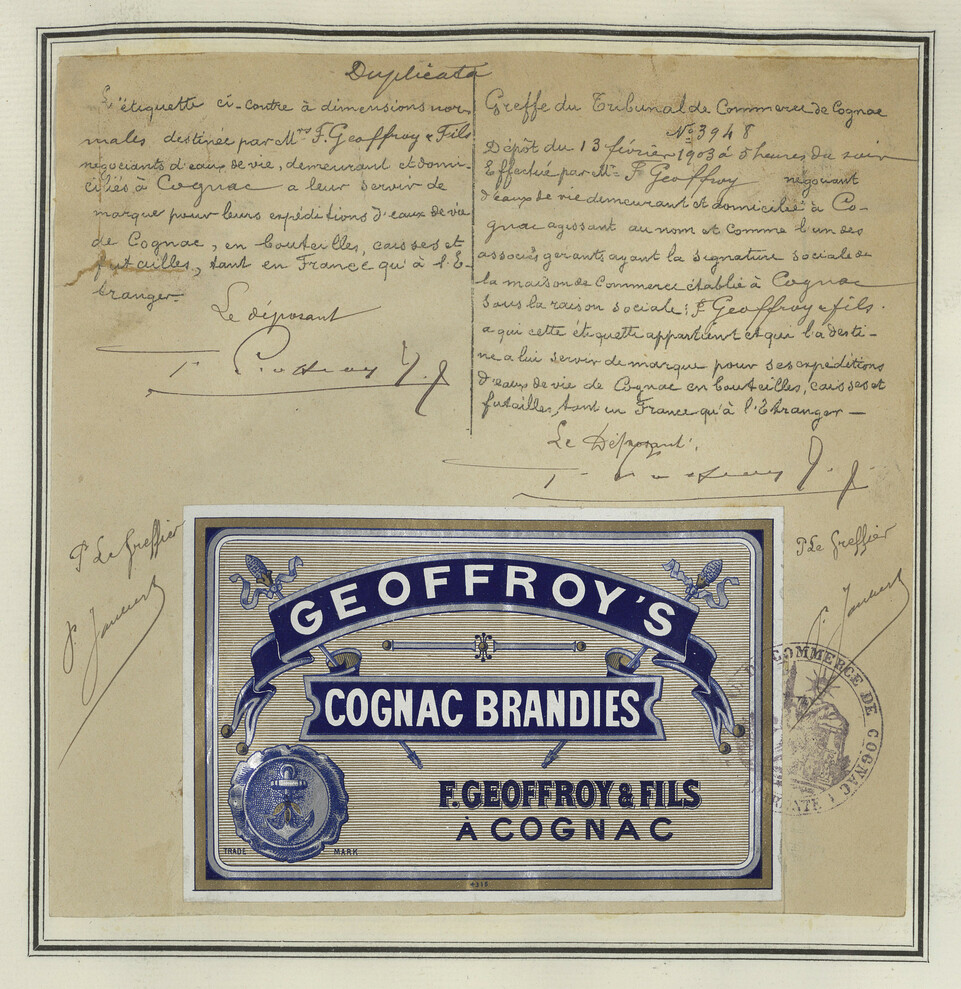 Duplicata
L'étiquette ci-contre à dimensions nor-
males destinée par Mrs F. Geoffroy & Fils
négociants d'eaux de vie, demeurant et domi-
ciliés à Cognac a leur servir de
marque pour leurs expéditions d'eaux de vie
de Cognac, en bouteilles, caisses et
futailles, tant en France qu'à l'É-
tranger.
Le déposant
Greffe du Tribunal de Commerce de Cognac
No 3948
Dépôt du 13 février 1903 à 5 heures du soir
Effectué par Mr F Geoffroy négociant
d'eaux de vie demeurant et domicilié à Co-
gnac agissant au nom et comme l'un des
associés gérants ayant la signature sociale de
la maison de Commerce établie à Cognac
sous la raison sociale: F Geoffroy & fils.
a qui cette étiquette appartient et qui l'a desti-
née a lui servir de marque pour ses expéditions
d'eaux de vie de Cognac en bouteilles, caisses et
futailles, tant en France qu'à l'Etranger —
Le Déposant
Pr Le Greffier
Pr Le Greffier
GEOFFROY'S
COGNAC BRANDIES
F. GEOFFROY & FILS
À COGNAC
TRADE MARK
4315
COMMERCE DE COGNAC